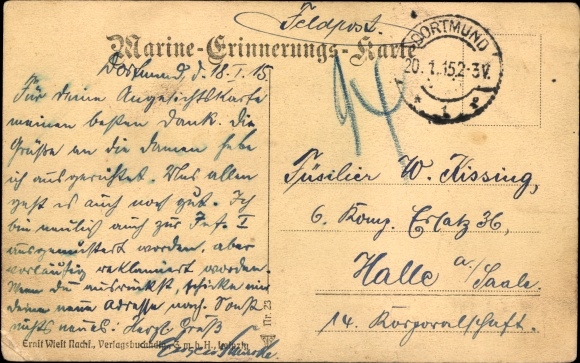 Feldpost.
Marine-Erinnerungs-Karte
DORTMUND
20.1.15 2-3V.
* 1 r
Dortmund, d. 18.I.15
Für deine Angesichtskarte
meinen besten Dank. Die
Grüße an die Damen habe
ich ausgerichtet. Uns allen
geht es auch noch gut. Ich
bin neulich auch zur Inf. I
ausgemustert worden, aber
vorläufig reklamiert worden.
Wenn du ausrückst, schicke mir
deine neue Adresse noch. Sonst
nichts neues. Herzl. Gruß
Füsilier W. Kissing,
6. Komp. Ersatz 36,
Halle a/Saale.
14. Korporalschaft.
Nr. 23
Ernst Wiest Nachf., Verlagsbuchhdlg. G.m.b.H., Leipzig